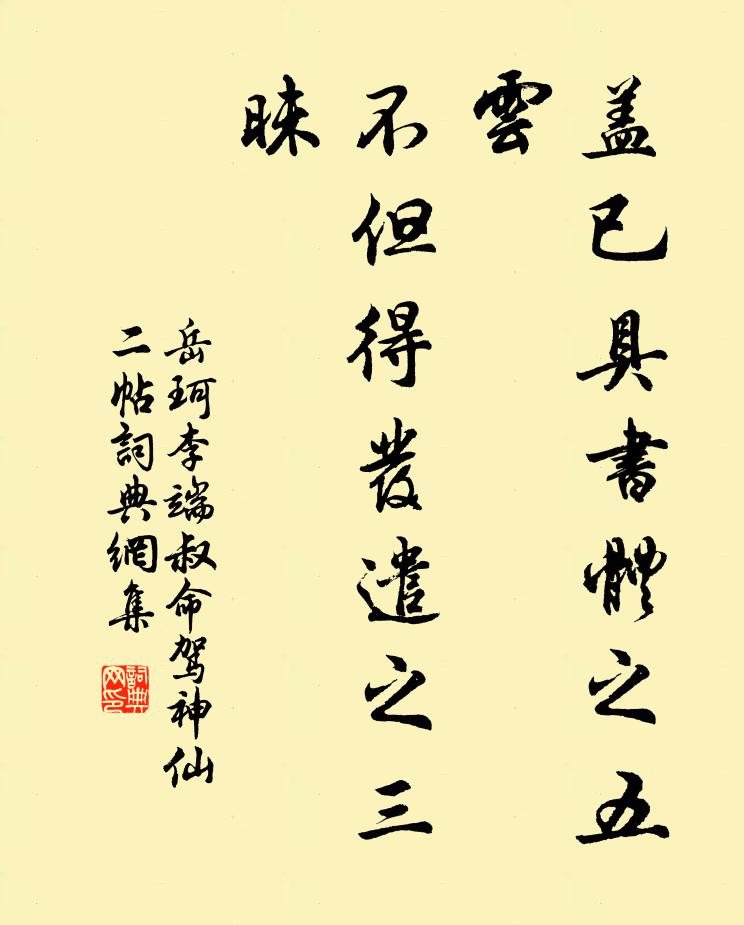 盖已具書體之五
雲
不但得發遣之三
昧
岳珂李端叔命駕神仙
二帖詞典網集
詞典
网印